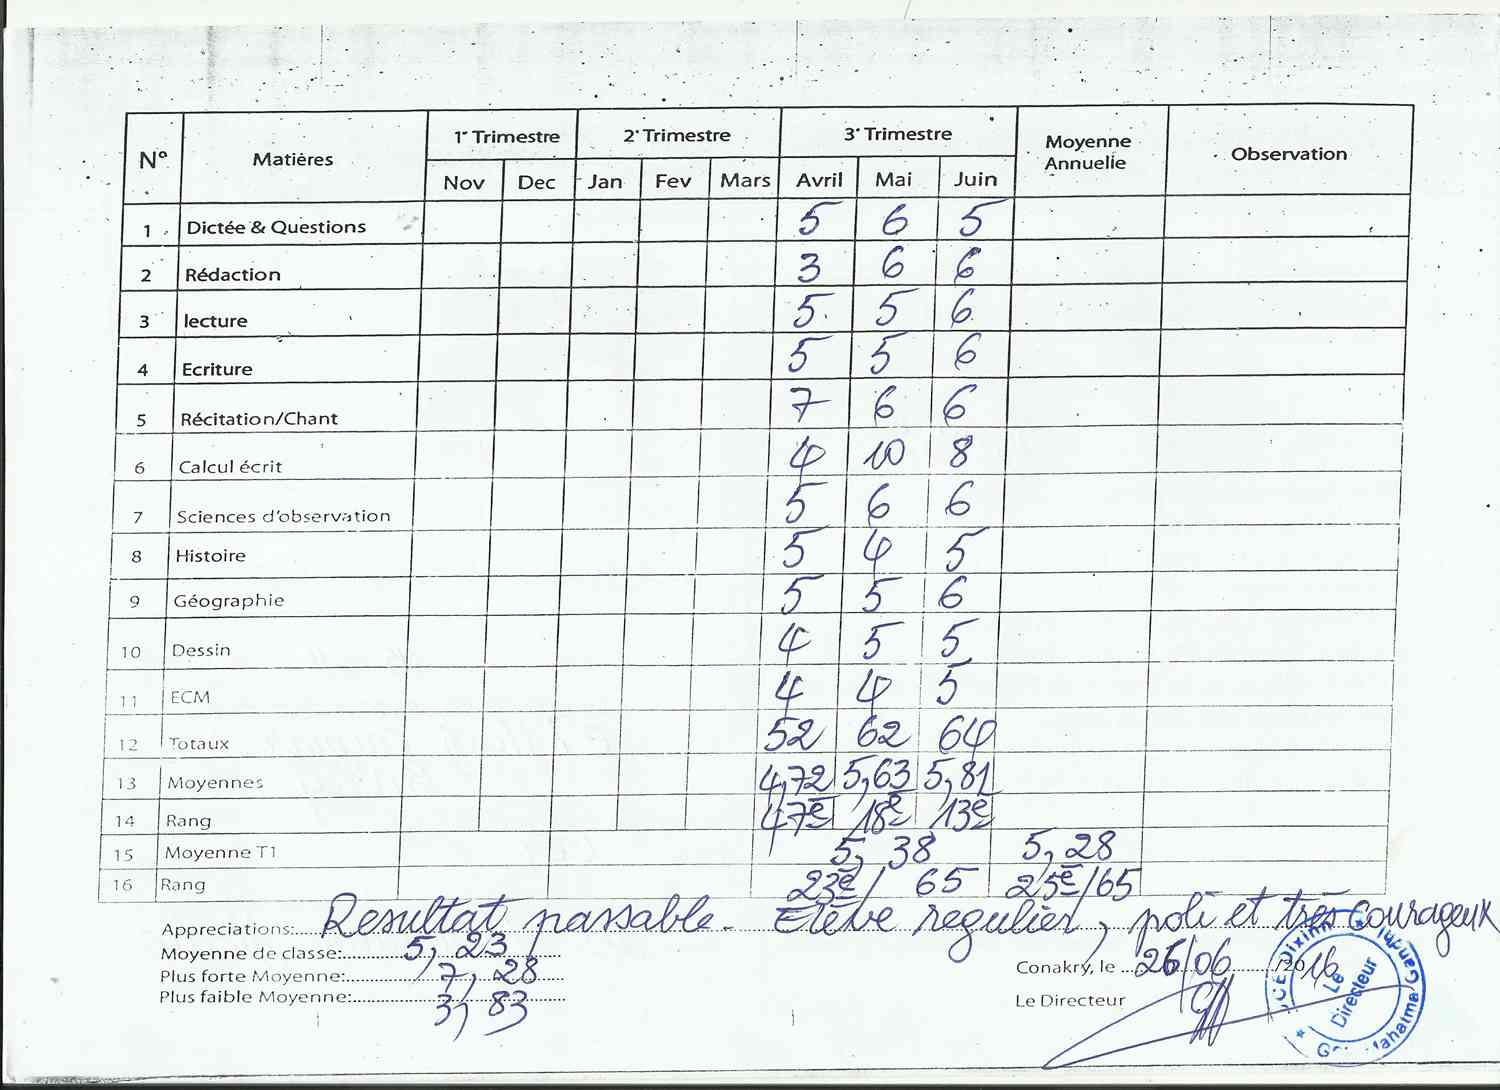 N° Matières 1er Trimestre 2e Trimestre 3e Trimestre Moyenne Annuelie Observation
Nov Dec Jan Fev Mars Avril Mai Juin
1 Dictée & Questions 5 6 5
2 Rédaction 3 6 6
3 lecture 5 5 6
4 Ecriture 5 5 6
5 Récitation/Chant 7 6 6
6 Calcul écrit 4 10 8
7 Sciences d'observation 5 6 6
8 Histoire 5 4 5
9 Géographie 5 5 6
10 Dessin 4 5 5
11 ECM 4 4 5
12 Totaux 52 62 64
13 Moyennes 4,72 5,63 5,81
14 Rang 47e 18e 13e
15 Moyenne T1 5,38 5,28
16 Rang 23e/65 25e/65
Appreciations: Resultat passable. Elève regulier, poli et très courageux
Moyenne de classe: 5,23
Plus forte Moyenne: 7,28
Plus faible Moyenne: 3,83
Conakry, le 26/06/2016
Le Directeur
Dixinn
Le Directeur